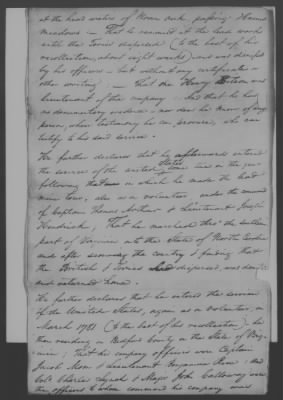 at the head waters of Roan oak passing
meadows — That he remained at the lead works
until the Tories dispersed (to the best of his
recollection, about eight weeks) and was discharged
by his officers — but without any certificate or
other writing — That one Henry was
Lieutenant of the company — And that he has
no documentary evidence, nor does he know of any
person, whose testimony he can procure, who can
testify to his said service.
He further declares that he afterwards entered
the service of the United States in the year
following that in which he made the lead
mine tour; also as a volunteer, under the command
of Captain Thomas Arthur & Lieutenant Joseph
Hendrick; That he marched thro' the southern
part of Virginia into the State of North Carolina
and after scouring the country & finding that
the British & Tories had dispersed, was discharged
and returned home.
He further declares that he entered the service
of the United States, again as a volunteer, in
March 1781 (to the best of his recollection), he
then residing in Bedford County in the State of Virginia;
That his company officers were Captain
Jacob Moon & Lieutenant Benjamin; and
Colo. Charles Lynch & Major John Calloway were
the officers to whose command his company was